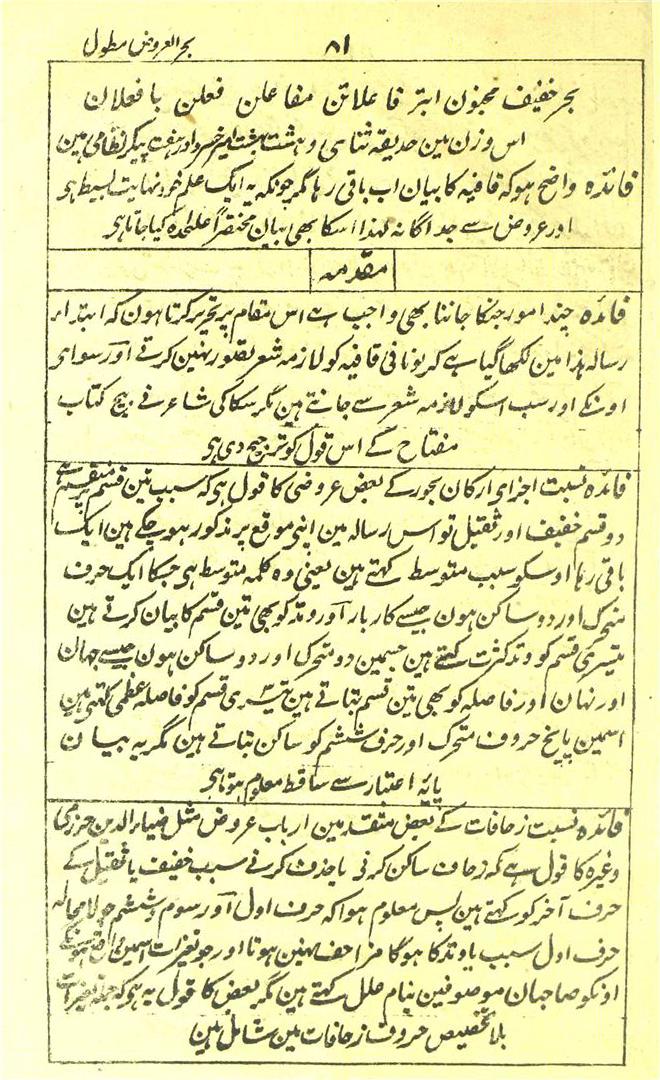 ۸۱
بحر العروض مطول
بحر خفیف مخبون ابتر فاعلاتن مفاعلن فعلن یا فعلان
اس وزن مین حدیقہ ثنای و ہشت بہشت امیر خسرو اور ہفت پیکر نظامی ہین
فائدہ واضح ہو کہ قافیہ کا بیان اب باقی رہا مگر چونکہ یہ ایک علم خود نہایت بسیط ہی
اور عروض سے جداگانہ لہذا اسکا بھی بیان مختصراً علٰحدہ کیا جاتا ہی
مقدمہ
فائدہ چند امور جنکا جاننا بھی واجب ہے اس مقام پر تحریر کرتا ہون کہ ابتداء
رسالہ ہذا مین لکھا گیا ہے کہ یونانی قافیہ کو لازمہ شعر تصور نہین کرتے اور سوای
اونکے اور سب اسکو لازمہ شعر سے جانتے ہین مگر سکاکی شاعر نے بیچ کتاب
مفتاح کے اس قول کو ترجیح دی ہی
فائدہ نسبت اجزای ارکان بحور کے بعض عروضی کا قول ہی کہ سبب تین قسم پر منقسم ہے
دو قسم خفیف اور ثقیل تو اس رسالہ مین اپنی موقع پر مذکور ہو چکے ہین ایک
باقی رہا اوسکو سبب متوسط کہتے ہین یعنی وہ کلمہ متوسط ہی جسکا ایک حرف
متحرک اور دو ساکن ہون جیسے کار بار اور وتد کو بھی تین قسم کا بیان کرتے ہین
تیسری قسم کو وتد کثرت کہتے ہین جسمین دو متحرک اور دو ساکن ہون جیسے جہان
اور نہان اور فاصلہ کو بھی تین قسم بتاتے ہین تیسری قسم کو فاصلہ عظمی کہتی ہین
اسمین پانچ حروف متحرک اور حرف ششم کو ساکن بتاتے ہین مگر یہ بیان
پایۂ اعتبار سے ساقط معلوم ہوتا ہی
فائدہ نسبت زحافات کے بعض متقدمین ارباب عروض مثل ضیاء الدین
وغیرہ کا قول ہے کہ زحاف ساکن کرنی یا حذف کرنے سبب خفیف یا ثقیل کے
حرف آخر کو کہتے ہین پس معلوم ہوا کہ حرف اول اور سوم و ششم جو لامحالہ
حرف اول سبب یا وتد کا ہوگا مزاحف نہین ہوتا اور جو تغیرات اسمین واقع ہونگے
اونکو صاحبان موصوفین بنام علل کہتے ہین مگر بعض کا قول یہ ہی کہ جملہ تغیرات
بلا تخصیص حروف زحافات مین شامل ہین